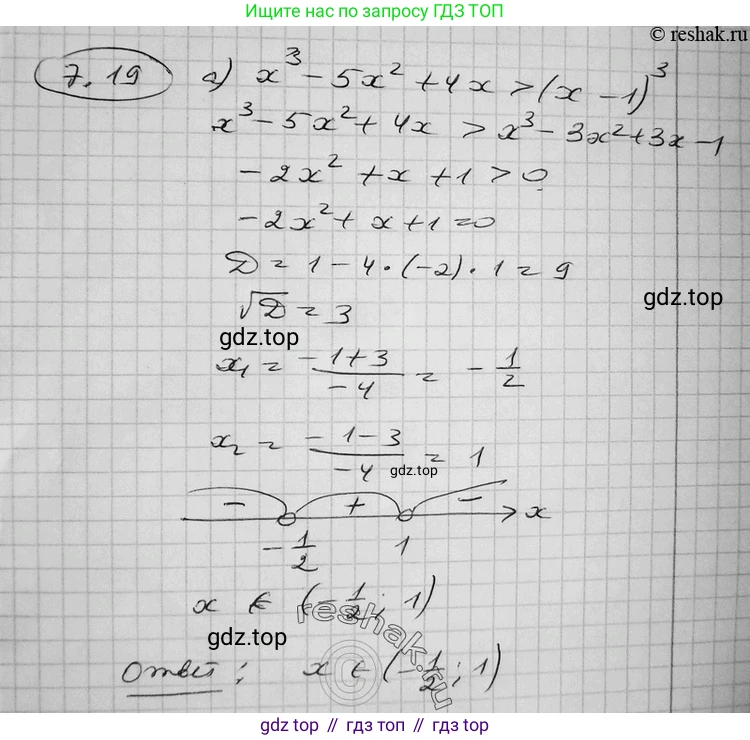 Ищите нас по запросу ГДЗ ТОП
© reshak.ru
7.19 а) x³ - 5x² + 4x > (x - 1)³
x³ - 5x² + 4x > x³ - 3x² + 3x - 1
-2x² + x + 1 > 0
-2x² + x + 1 = 0
D = 1 - 4 · (-2) · 1 = 9
gdz.top
√D = 3
gdz.top
x₁ = (-1+3)/(-4) = -1/2
x₂ = (-1-3)/(-4) = 1
gdz.top
- + - x
-1/2 1
x ∈ (-1/2; 1)
reshak.ru
gdz.top
©
Ответ: x ∈ (-1/2; 1)
gdz.top // гдз топ // gdz top